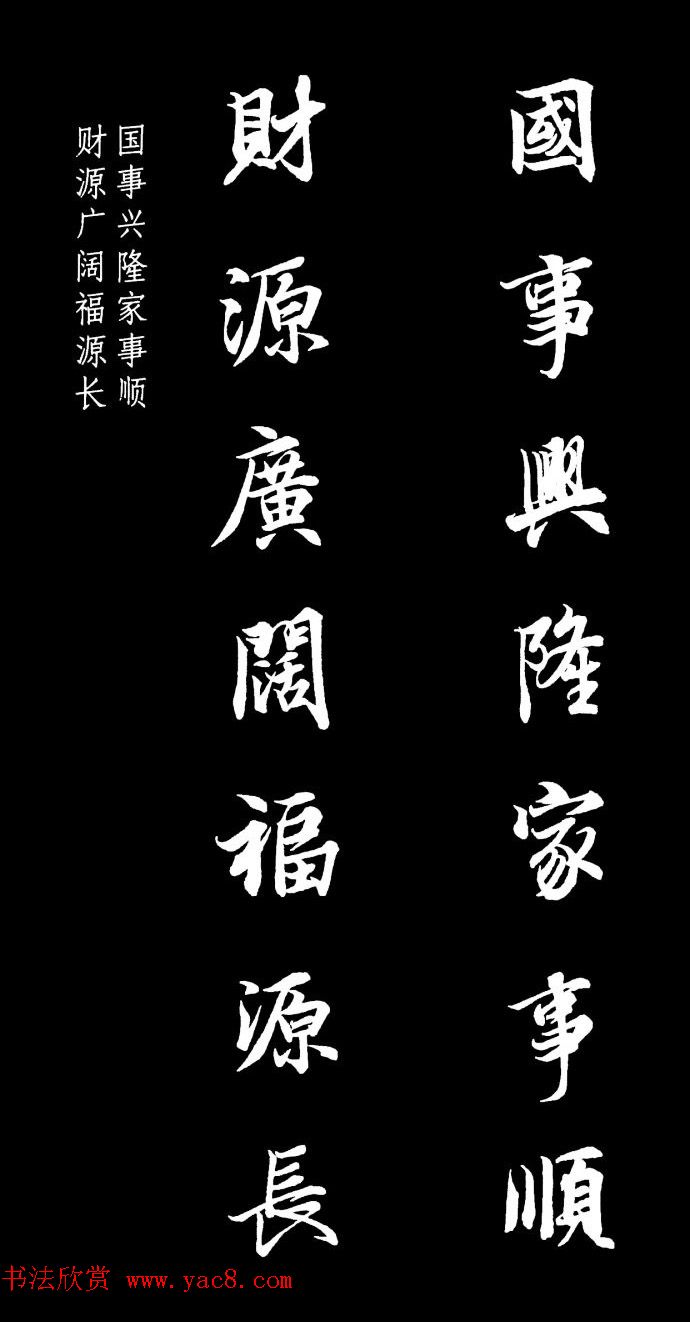 國事興隆家事順
財源廣闊福源長
国事兴隆家事顺
财源广阔福源长
书法欣赏 www.yac8.com